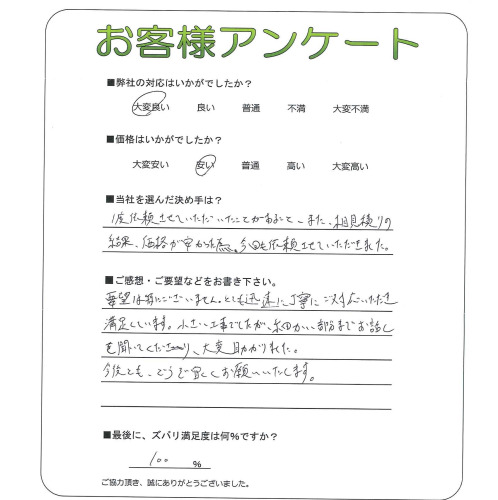 お客様アンケート
■弊社の対応はいかがでしたか？
大変良い 良い 普通 不満 大変不満
■価格はいかがでしたか？
大変安い 安い 普通 高い 大変高い
■当社を選んだ決め手は？
1度依頼させていただいたことがあることと、また、相見積りの
結果、価格が安かった為。今回も依頼させていただきました。
■ご感想・ご要望などをお書き下さい。
要望は特にございません。とても迅速に丁寧にご対応いただき
満足しています。小さい工事でしたが、細かい部分までお話し
を聞いてくださり、大変助かりました。
今後とも、どうぞ宜しくお願いいたします。
■最後に、ズバリ満足度は何％ですか？
100 ％
ご協力頂き、誠にありがとうございました。